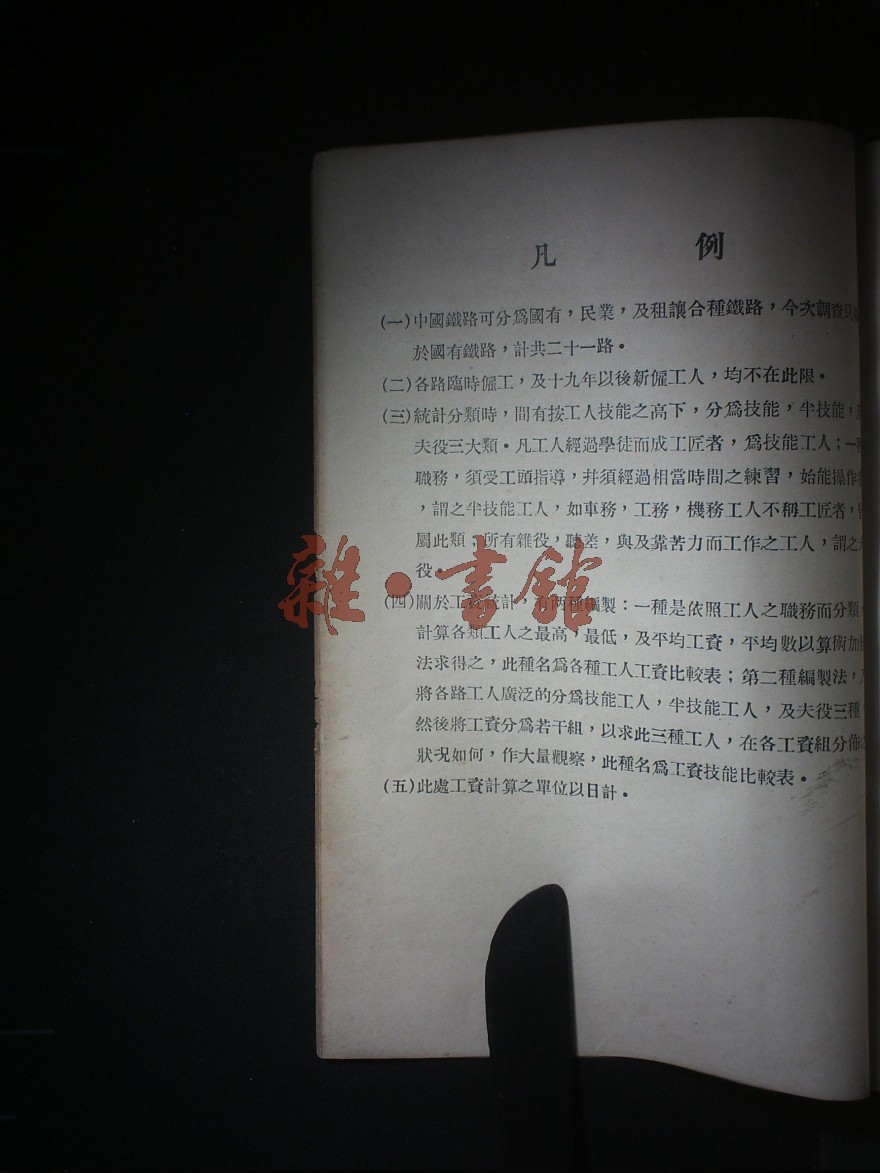 凡 例
(一)中國鐵路可分爲國有，民業，及租讓合種鐵路，今次調查只
於國有鐵路，計共二十一路。
(二)各路臨時僱工，及十九年以後新僱工人，均不在此限。
(三)統計分類時，間有按工人技能之高下，分爲技能，半技能，及
夫役三大類。凡工人經過學徒而成工匠者，爲技能工人；一種
職務，須受工頭指導，幷須經過相當時間之練習，始能操作者
，謂之半技能工人，如車務，工務，機務工人不稱工匠者，皆
屬此類；所有雜役，聽差，與及靠苦力而工作之工人，謂之夫
役。
(四)關於工資統計，有两種編製：一種是依照工人之職務而分類，
計算各類工人之最高，最低，及平均工資，平均數以算術加權
法求得之，此種名爲各種工人工資比較表；第二種編製法，乃
將各路工人廣泛的分爲技能工人，半技能工人，及夫役三種，
然後將工資分爲若干組，以求此三種工人，在各工資組分佈之
狀況如何，作大量觀察，此種名爲工資技能比較表。
(五)此處工資計算之單位以日計。
雜·書館